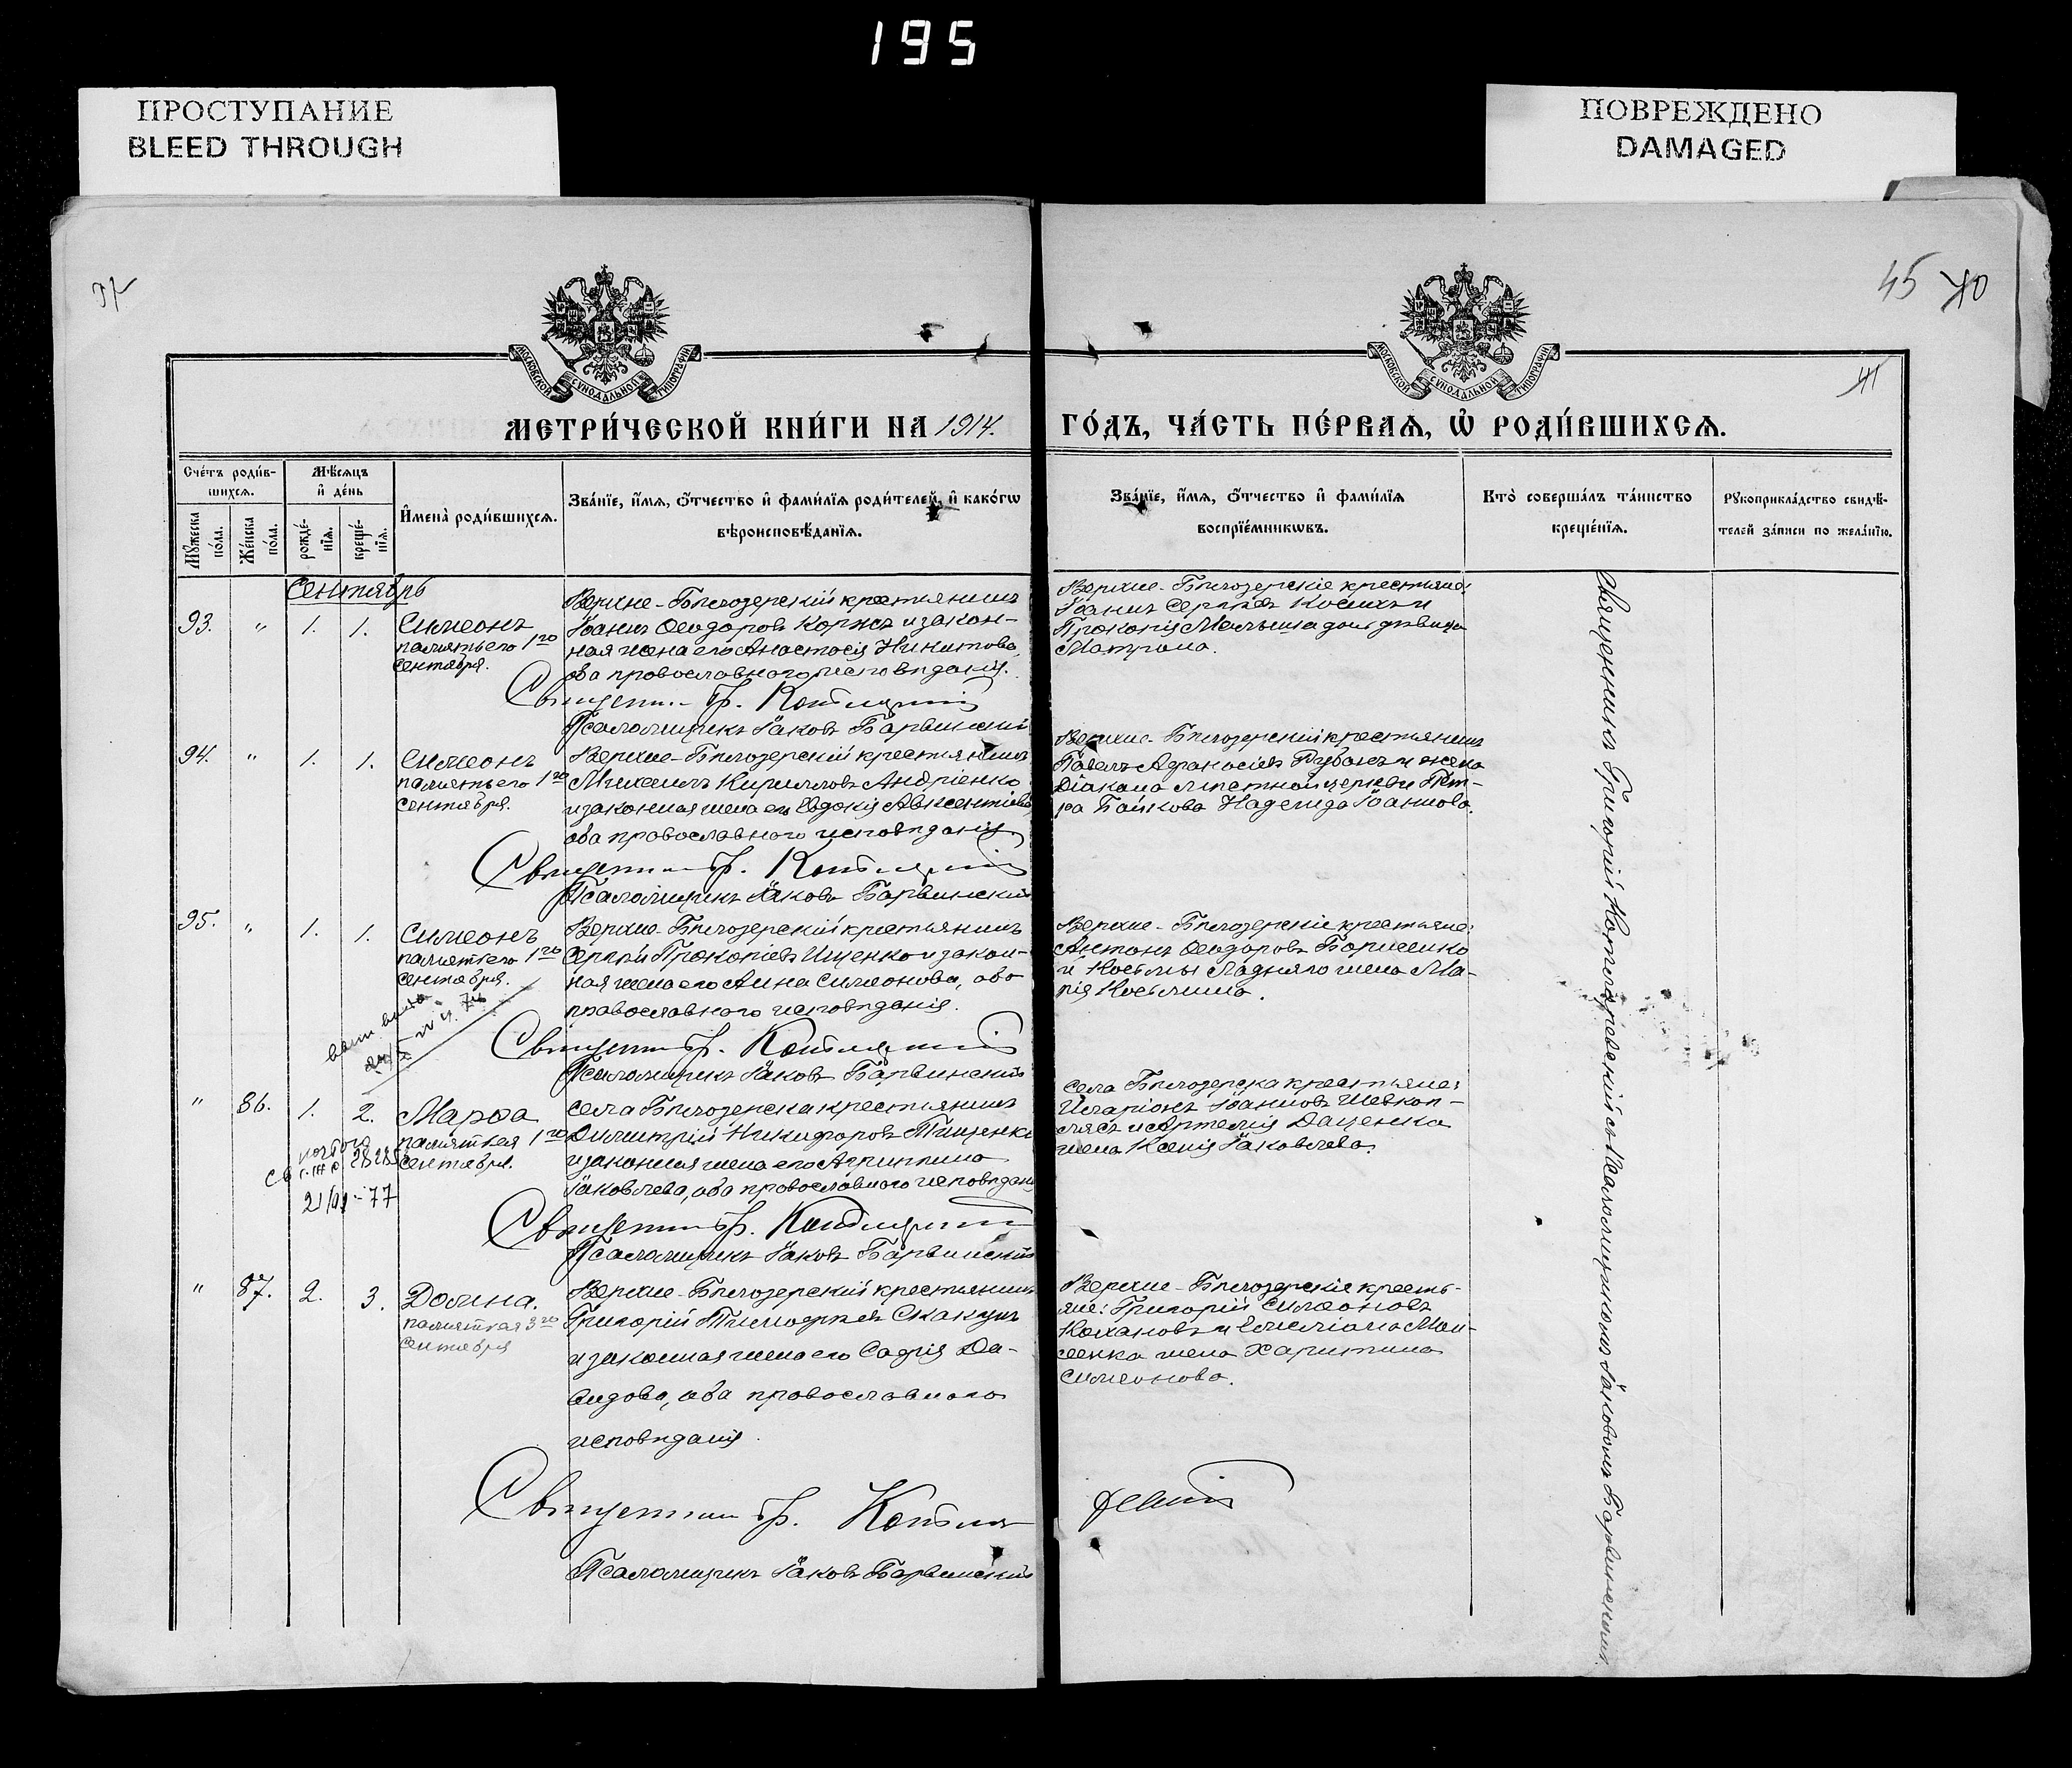 195
ПРОСТУПАНИЕ
BLEED THROUGH
ПОВРЕЖДЕНО
DAMAGED
45 40
41
МОСКОВСКОЙ СѴНОДАЛЬНОЙ ТИПОГРАФІИ
МОСКОВСКОЙ СѴНОДАЛЬНОЙ ТИПОГРАФІИ
МЕТРИ́ЧЕСКОЙ КНИ́ГИ НА 1914. ГО́ДЪ, ЧА́СТЬ ПЕ́РВАѦ, Ѽ РОДИ́ВШИХСѦ.
Сче́тъ роди́в-
шихсѧ.
Мꙋ́жеска по́ла.
Же́нска по́ла.
Мѣ́сѧцъ
и҆ де́нь
рожде́-нїѧ.
креще́-нїѧ.
И҆мена̀ роди́вшихсѧ.
Зва́нїе, и҆́мѧ, ѻ҆́тчество и҆ фами́лїѧ роди́телей, и҆ како́гѡ
вѣроисповѣ́данїѧ.
Зва́нїе, и҆́мѧ, ѻ҆́тчество и҆ фами́лїѧ
воспрїе́мникѡвъ.
Кто̀ соверша́лъ та́инство
креще́нїѧ.
Рꙋкоприкла́дство свидѣ́-
телей за́писи по жела́нїю.
Сентябрь
93. " 1. 1.
Симеонъ
память его 1го
сентября.
Верхне-Бѣлозерскій крестьянинъ
Іоаннъ Ѳеодоровъ Коржъ и закон-
ная жена его Анастасія Никитова,
оба православнаго исповѣданія.
Священн. Гр. Котляревскій
Псаломщикъ Іаковъ Барвинскій
Верхне-Бѣлозерскіе крестьяне:
Іоаннъ Сергѣевъ Косихъ и
Прокопія Малыша дочь дѣвица
Матрона.
94. " 1. 1.
Симеонъ
память его 1го
сентября.
Верхне-Бѣлозерскій крестьянинъ
Михаилъ Кирилловъ Андріенко
и законная жена его Евдокія Авксентіева,
оба православнаго исповѣданія
Священник Гр. Котляревскій
Псаломщикъ Іаковъ Барвинскій
Верхне-Бѣлозерскій крестьянинъ
Павелъ Аѳанасіевъ Рубанъ и жена
Діакона мѣстной церкви Пет-
ра Байкова Надежда Іоаннова.
95. " 1. 1.
Симеонъ
память его 1го
сентября.
Верхне-Бѣлозерскій крестьянинъ
Сергѣй Прокопіевъ Ищенко и закон-
ная жена его Анна Симеонова, оба
православнаго исповѣданія.
Священник Гр. Котляревскій
Псаломщикъ Іаковъ Барвинскій
Верхне-Бѣлозерскіе крестьяне:
Антонъ Ѳеодоровъ Борисенко
и Космы Ладняго жена Ма-
рія Космина.
" 86. 1. 2.
21/ -77
Марѳа
память ея 1го
сентября.
Села Бѣлозерска крестьянинъ
Димитрій Никифоровъ Тищенко
и законная жена его Агриппина
Іаковлева, оба православнаго исповѣданія
Священник Гр. Котляревскій
Псаломщикъ Іаковъ Барвинскій
Села Бѣлозерска крестьяне:
Иларіонъ Іоанновъ Шевкоп-
лясъ и Артемія Даценка
жена Ксенія Іаковлева.
" 87. 2. 3.
Домна.
память ея 3го
сентября
Верхне-Бѣлозерскій крестьянинъ
Григорій Тимоѳеевъ Скакунъ
и законная жена его Софія Да-
видова, оба православнаго
исповѣданія.
Священник Гр. Котляревскій
Псаломщикъ Іаковъ Барвинскій
Верхне-Бѣлозерскіе кресть-
яне: Григорій Симеоновъ
Кохановъ и Емеліана Мои-
сеенка жена Харитина
Симеонова.
Священникъ Григорій Котляревскій съ псаломщикомъ Іаковомъ Барвинскимъ.